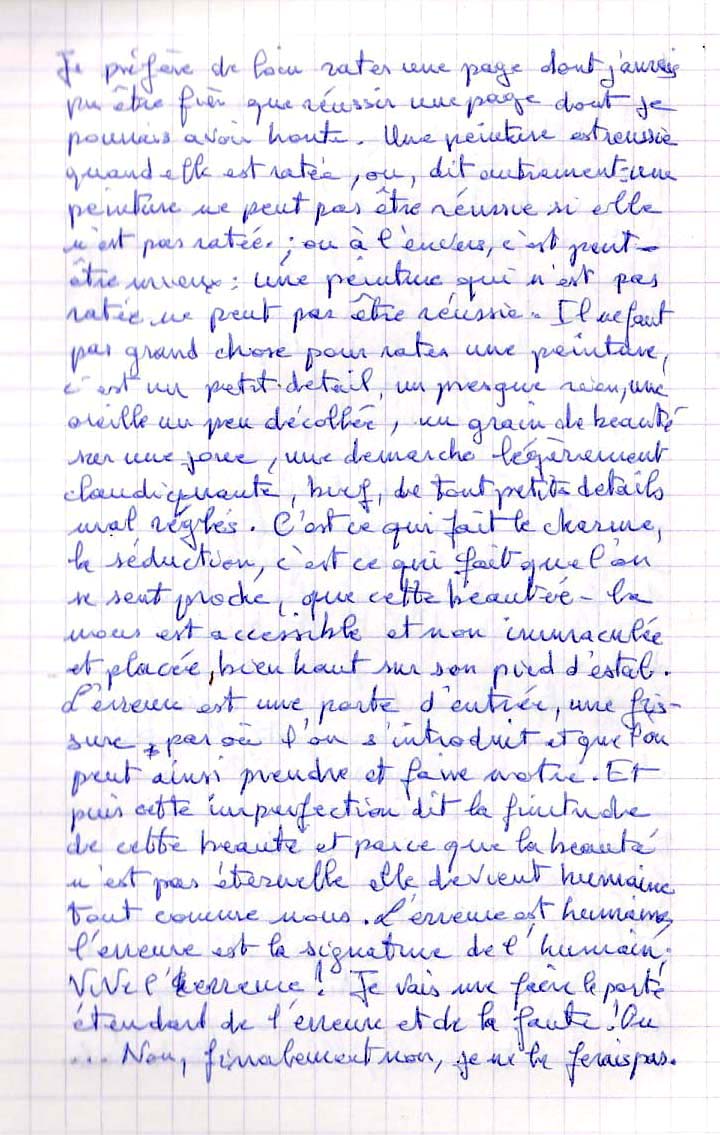 Je préfère de loin rater une page dont j'aurais
pu être fier que réussir une page dont je
pourrais avoir honte. Une peinture est reussie
quand elle est ratée, ou, dit autrement: une
peinture ne peut pas être réussie si elle
n'est pas ratée. ; ou à l'envers, c'est peut-
être mieux: une peinture qui n'est pas
ratée ne peut pas être réussie. Il ne faut
pas grand chose pour rater une peinture,
c'est un petit détail, un presque rien, une
oreille un peu décollée, un grain de beauté
sur une joue, une demarche légèrement
claudiquante, bref, de tout petits détails
mal réglés. C'est ce qui fait le charme,
la séduction, c'est ce qui fait que l'on
se sent proche, que cette beautée-la
nous est accessible et non immaculée
et placée, bien haut sur son pied d'estal.
L'erreur est une porte d'entrée, une fis-
sure, par où l'on s'introduit et que l'on
peut ainsi prendre et faire notre. Et
puis cette imperfection dit la finitude
de cette beauté et parce que la beauté
n'est pas éternelle elle devient humaine
tout comme nous. L'erreure est humaine,
l'erreure est la signature de l'humain.
ViVe l'erreure! Je vais me faire le porte
étendard de l'erreure et de la faute! Ou
... Non, finalement non, je ne le ferais pas.